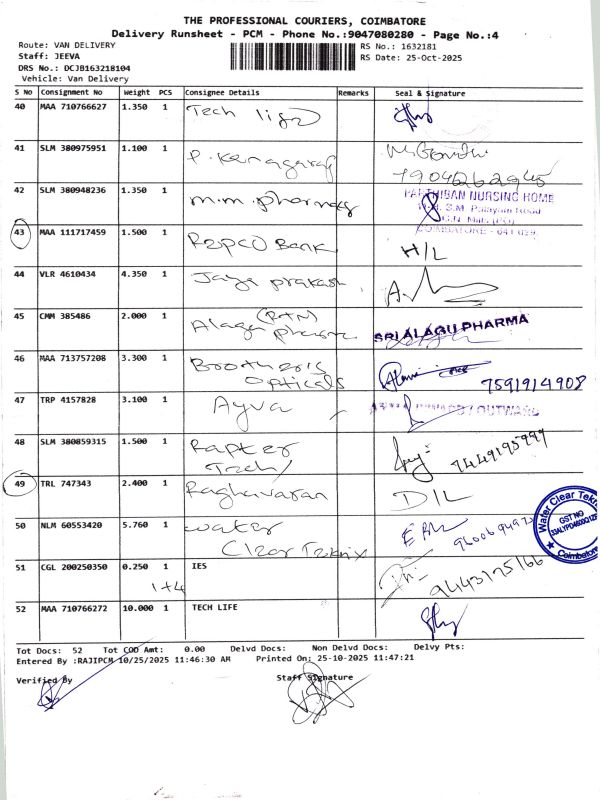 THE PROFESSIONAL COURIERS, COIMBATORE
Delivery Runsheet - PCM - Phone No.:9047080280 - Page No.:4
Route: VAN DELIVERY RS No.: 1632181
Staff: JEEVA RS Date: 25-Oct-2025
DRS No.: DCJB163218104
Vehicle: Van Delivery
S No Consignment No Weight PCS Consignee Details Remarks Seal & Signature
40 MAA 710766627 1.350 1 Tech
41 SLM 380975951 1.100 1 P. Kanagaraj
7904262945
42 SLM 380948236 1.350 1 m.m. pharmacy
PARTHIBAN NURSING HOME
S.M. Palayam Road
G.N. Mills (PO)
COIMBATORE - 641 029.
43 MAA 111717459 1.500 1 Repco Bank H/L
44 VLR 4610434 4.350 1 Jaya prakash
45 CMM 385486 2.000 1 Alagu pharma SRI ALAGU PHARMA
46 MAA 713757208 3.300 1 Brothers
Opticals 7591914908
47 TRP 4157828 3.100 1 Ayva INWARD / OUTWARD
48 SLM 380859315 1.500 1 Rapter
Tech 7449195999
49 TRL 747343 2.400 1 Raghavaran D/L
50 NLM 60553420 5.760 1 water
Clear Teknix
Water Clear Tekni
GST NO
Coimbatore
51 CGL 200250350 0.250 1 IES 9443175166
1+4
52 MAA 710766272 10.000 1 TECH LIFE
Tot Docs: 52 Tot COD Amt: 0.00 Delvd Docs: Non Delvd Docs: Delvy Pts:
Entered By :RAJIPCM 10/25/2025 11:46:30 AM Printed On: 25-10-2025 11:47:21
Verified By Staff Signature